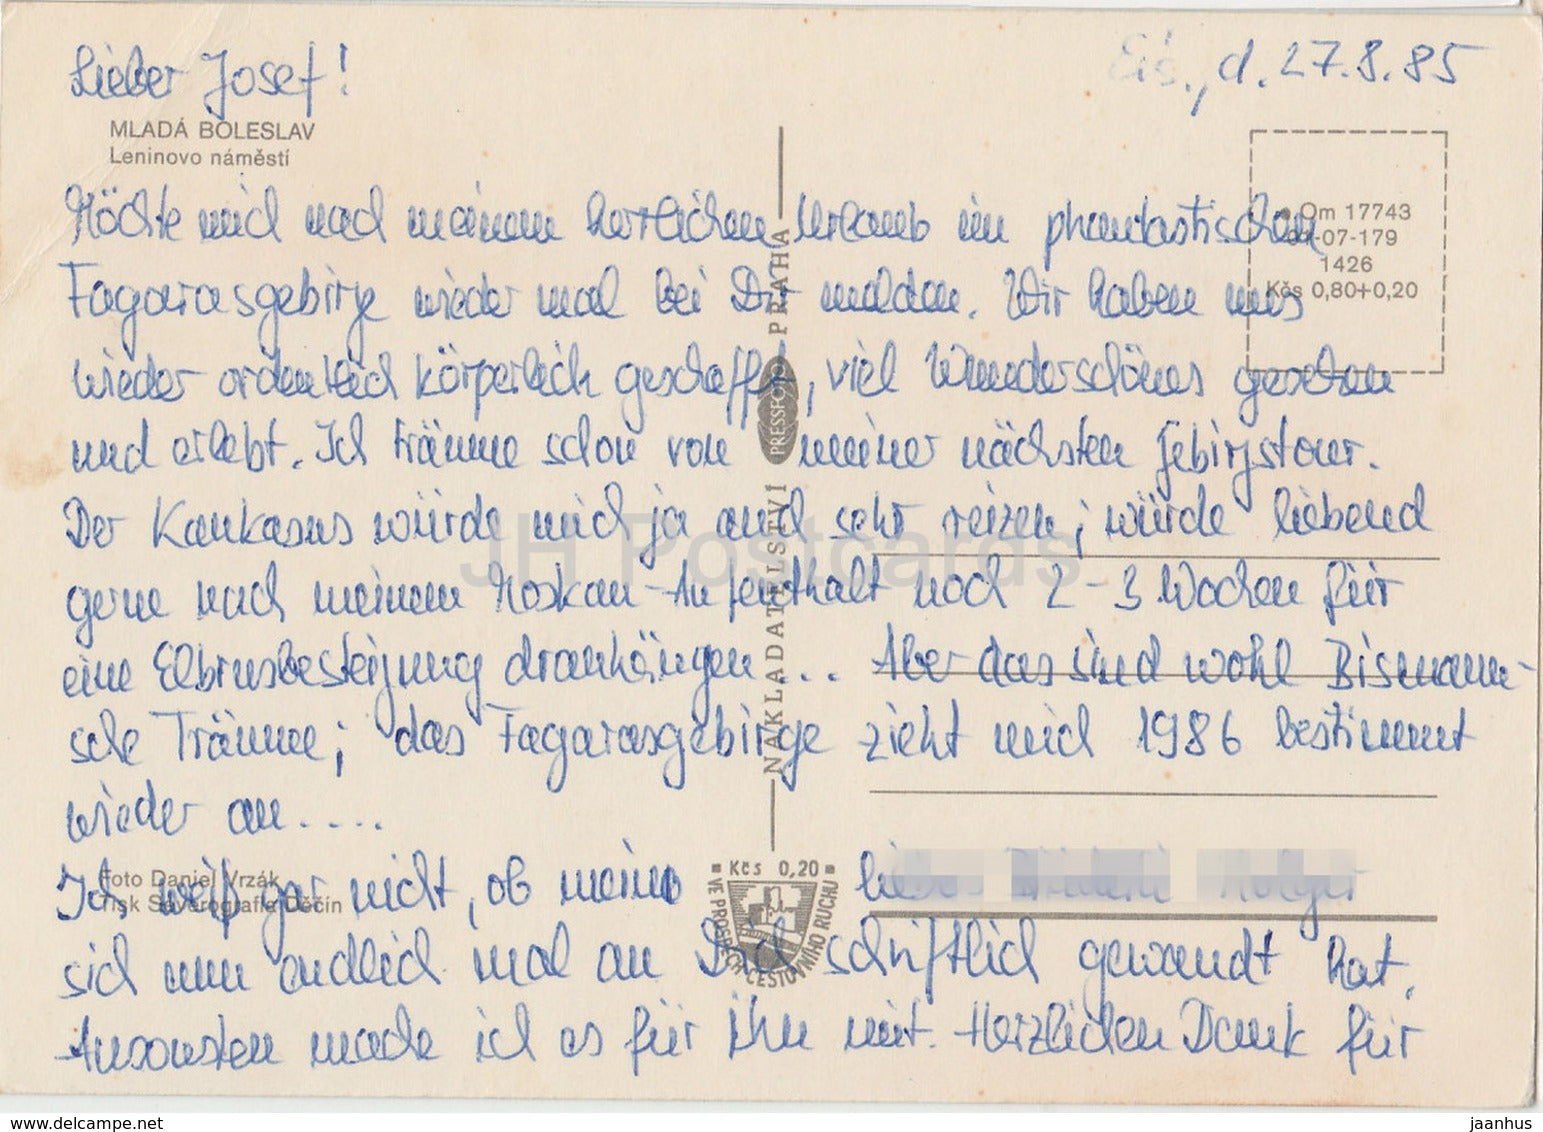 Lieber Josef!
Eis., d. 27.8.85
MLADÁ BOLESLAV
Leninovo náměstí
Om 17743
01-07-179
1426
Kčs 0,80+0,20
Möchte mich nach meinem herrlichen Urlaub im phantastischen
Fagarasgebirge wieder mal bei Dir melden. Wir haben uns
wieder ordentlich körperlich geschafft, viel Wunderschönes gesehen
und erlebt. Ich träume schon von meiner nächsten Gebirgstour.
Der Kaukasus würde mich ja auch sehr reizen; würde liebend
gerne nach meinem Moskau-Aufenthalt noch 2-3 Wochen für
eine Elbrusbesteigung dranhängen... Aber das sind wohl Bismann-
sche Träume; das Fagarasgebirge zieht mich 1986 bestimmt
wieder an....
Ich weiß gar nicht, ob meine
sich nun endlich mal an Dich schriftlich gewandt hat.
Ansonsten mache ich es für ihn mit. Herzlichen Dank für
Foto Daniel Vrzák
Tisk Severografia Děčín
NAKLADATELSTVÍ PRESSFOTO PRAHA
Kčs 0,20
VE PROSPĚCH CESTOVNÍHO RUCHU
JH Postcards
www.delcampe.net
jaanhus